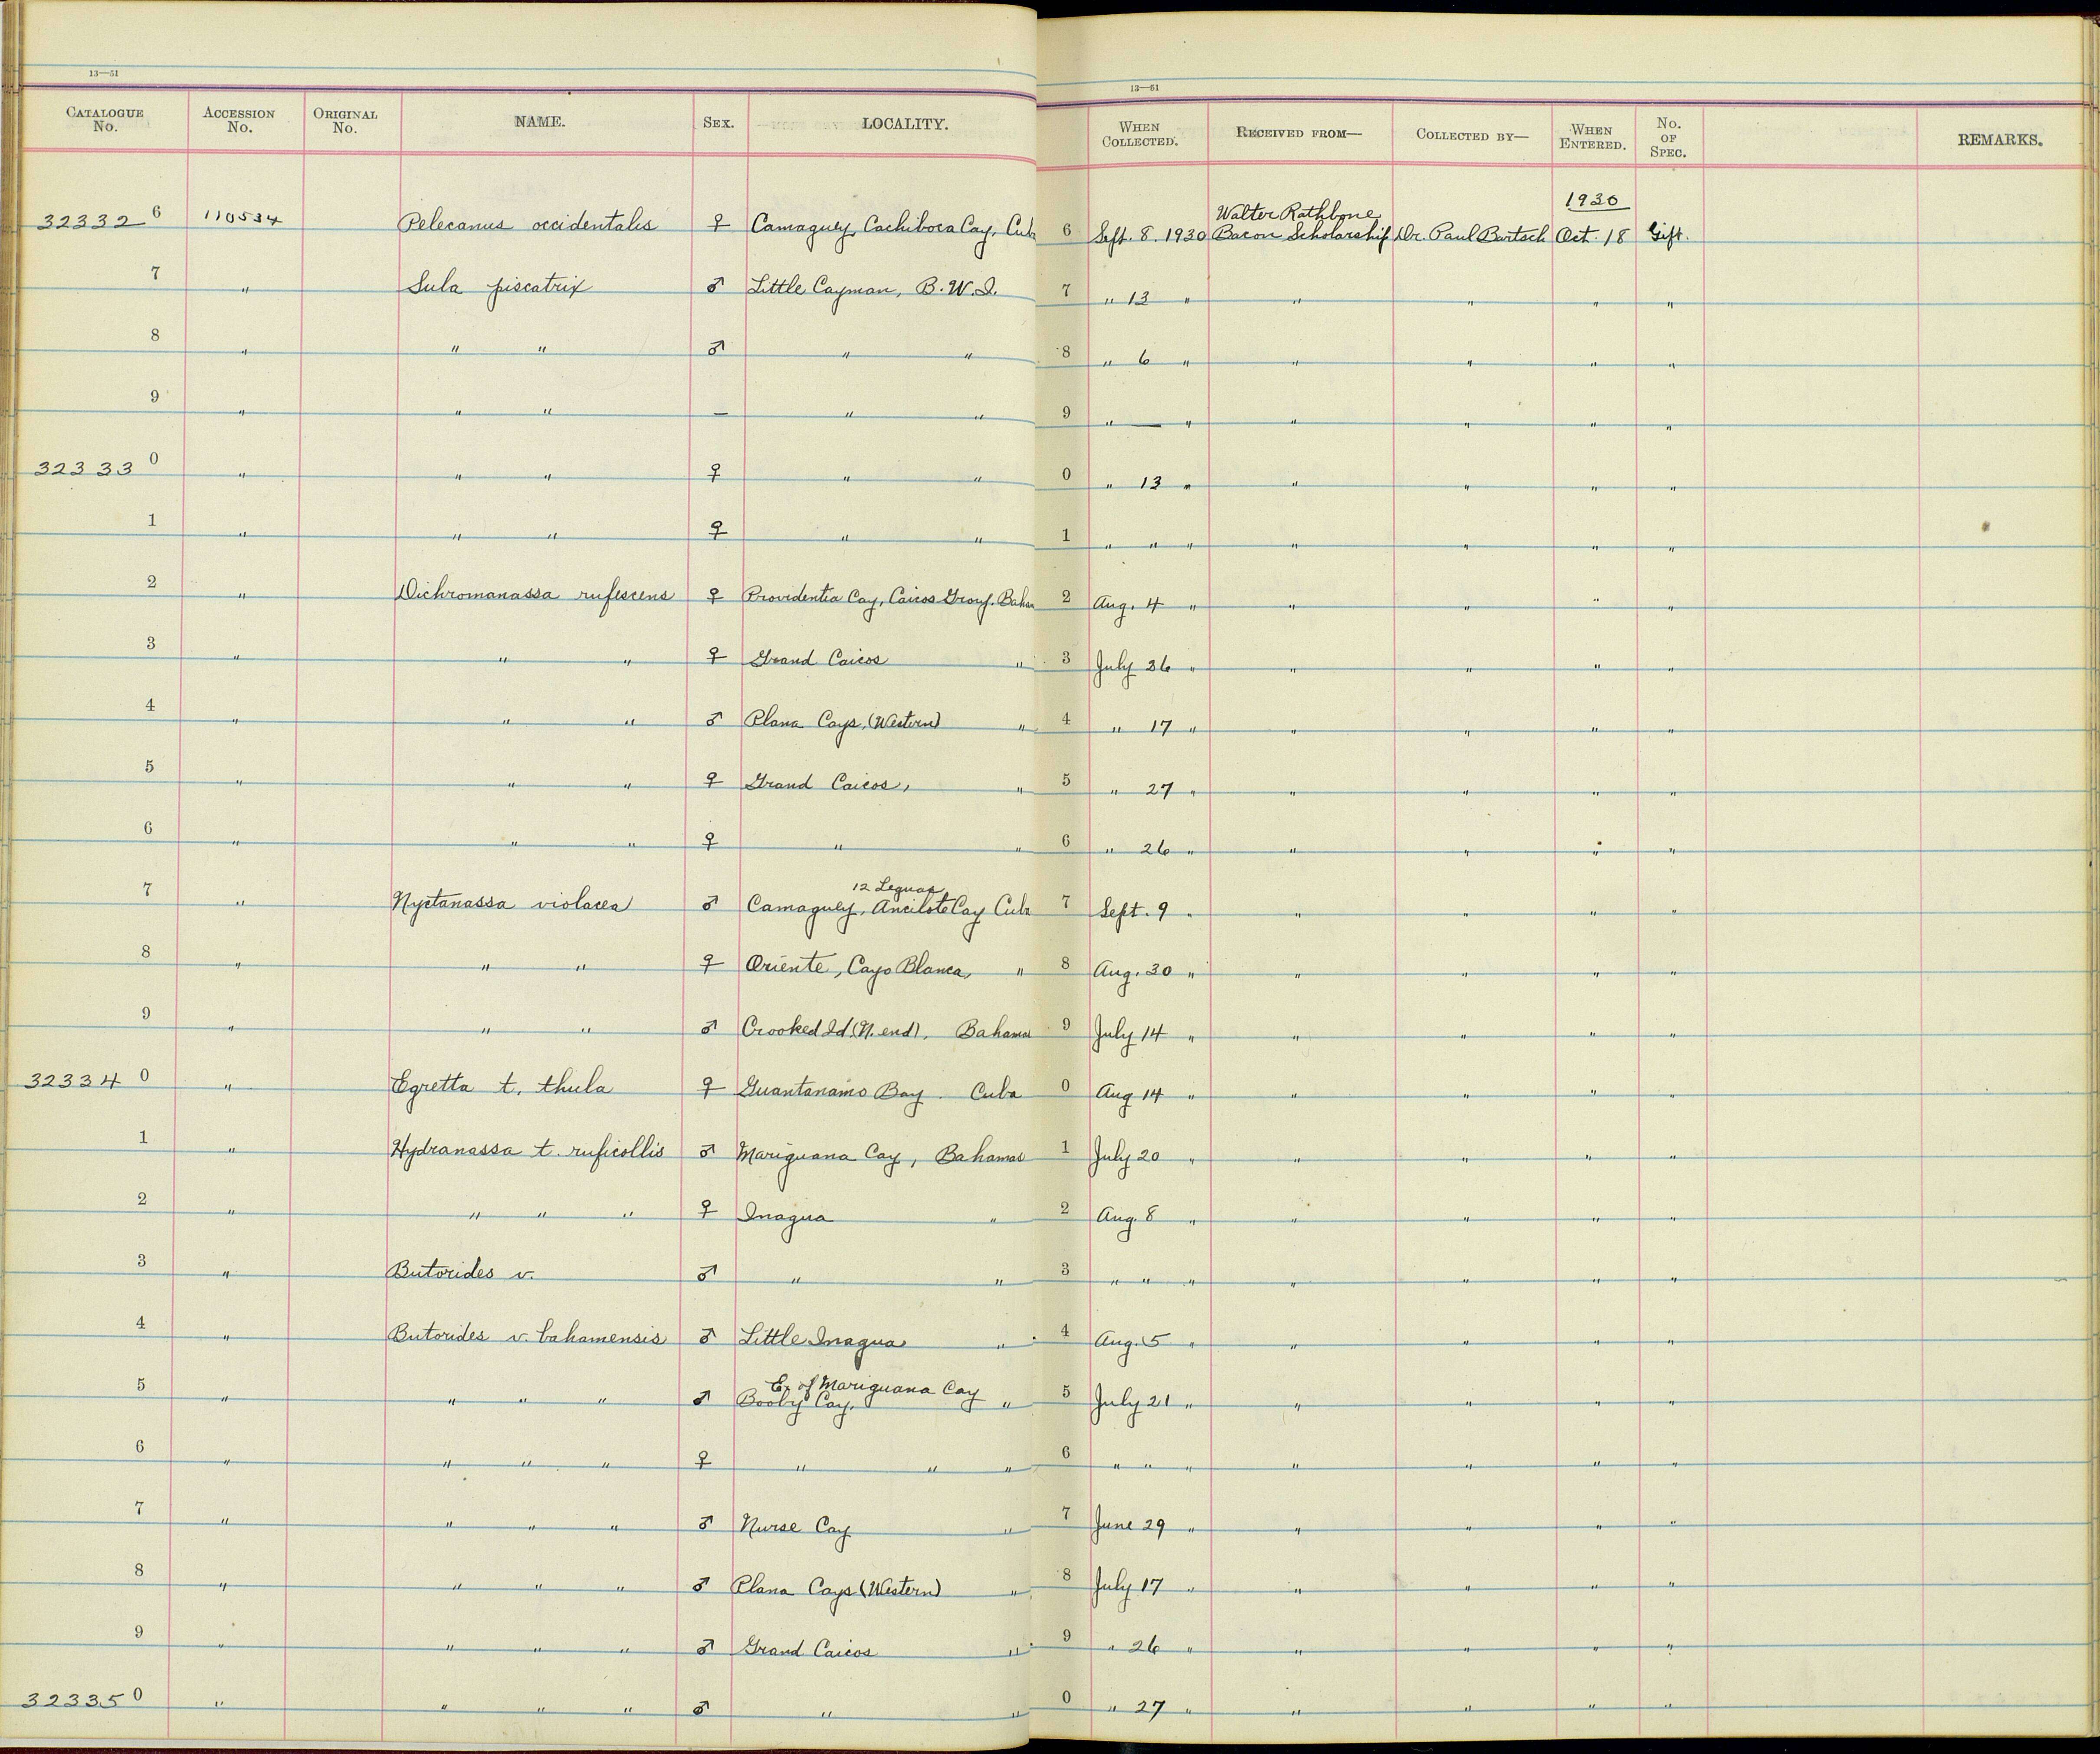 13—51
13—51
CATALOGUE No. ACCESSION No. ORIGINAL No. NAME. SEX. LOCALITY. WHEN COLLECTED. RECEIVED FROM— COLLECTED BY— WHEN ENTERED. No. OF SPEC. REMARKS.
1930
Walter Rathbone
32332 6 110534 Pelecanus occidentalis ♀ Camaguey, Cachiboca Cay, Cuba 6 Sept. 8. 1930 Bacon Scholarship Dr. Paul Bartsch Oct. 18 Gift.
7 " Sula piscatrix ♂ Little Cayman, B.W.I. 7 " 13 " " " " "
8 " " " ♂ " " 8 " 6 " " " " "
9 " " " — " " 9 " — " " " " "
32333 0 " " " ♀ " " 0 " 13 " " " " "
1 " " " ♀ " " 1 " " " " " " "
2 " Dichromanassa rufescens ♀ Providentia Cay, Caicos Group. Baham 2 Aug. 4 " " " " "
3 " " " ♀ Grand Caicos " 3 July 26 " " " " "
4 " " " ♂ Plana Cays, (Western) " 4 " 17 " " " " "
5 " " " ♀ Grand Caicos, " 5 " 27 " " " " "
6 " " " ♀ " " 6 " 26 " " " " "
12 Leguas
7 " Nyctanassa violacea ♂ Camaguey, Ancilote Cay Cuba 7 Sept. 9 " " " " "
8 " " " ♀ Oriente, Cayo Blanca, " 8 Aug. 30 " " " " "
9 " " " ♂ Crooked Id. (N. end), Bahama 9 July 14 " " " " "
32334 0 " Egretta t. thula ♀ Guantanamo Bay. Cuba 0 Aug 14 " " " " "
1 " Hydranassa t. ruficollis ♂ Mariguana Cay, Bahamas 1 July 20 " " " " "
2 " " " " ♀ Inagua " 2 Aug. 8 " " " " "
3 " Butorides v. ♂ " " 3 " " " " " " "
4 " Butorides v. bahamensis ♂ Little Inagua " 4 Aug. 5 " " " " "
E. of Mariguana Cay
5 " " " " ♂ Booby Cay, " 5 July 21 " " " " "
6 " " " " ♀ " " " 6 " " " " " " "
7 " " " " ♂ Nurse Cay " 7 June 29 " " " " "
8 " " " " ♂ Plana Cays (Western) " 8 July 17 " " " " "
9 " " " " ♂ Grand Caicos " 9 " 26 " " " " "
32335 0 " " " " ♂ " " 0 " 27 " " " " "